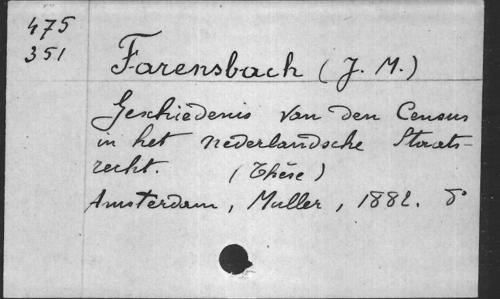 475
351
Farensbach (J. M.)
Geschiedenis van den Census
in het nederlandsche Staats-
recht. (Thèse)
Amsterdam, Muller, 1882. 8°